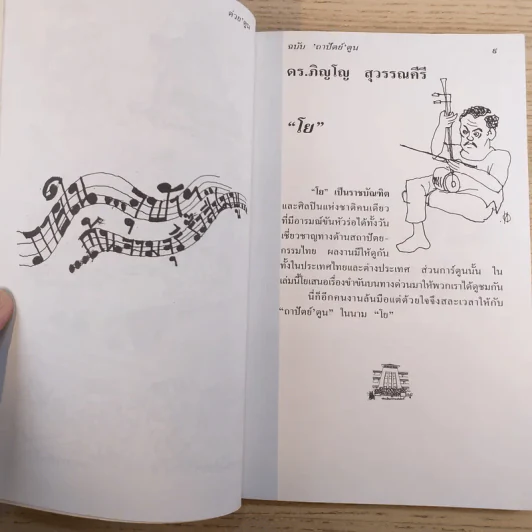 ต่วย'ตูน
ฉบับ 'ถาปัตย์'ตูน ๕
ดร.ภิญโญ สุวรรณคีรี
“โย”
“โย” เป็นราชบัณฑิต
และศิลปินแห่งชาติคนเดียว
ที่มีอารมณ์ขันหัวร่อได้ทั้งวัน
เชี่ยวชาญทางด้านสถาปัตย-
กรรมไทย ผลงานมีให้ดูกัน
ทั้งในประเทศไทยและต่างประเทศ ส่วนการ์ตูนนั้น ใน
เล่มนี้โยเสนอเรื่องขำขันบนทางด่วนมาให้พวกเราได้ดูชมกัน
นี่ก็อีกคนงานล้นมือแต่ด้วยใจจึงสละเวลาให้กับ
“ถาปัตย์'ตูน” ในนาม “โย”